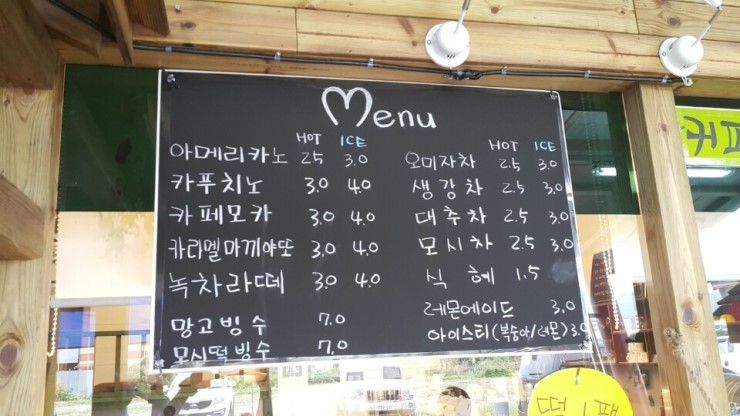 Menu
HOT ICE
아메리카노 2.5 3.0
카푸치노 3.0 4.0
카페모카 3.0 4.0
카라멜마끼야또 3.0 4.0
녹차라떼 3.0 4.0
망고빙수 7.0
모시떡빙수 7.0
HOT ICE
오미자차 2.5 3.0
생강차 2.5 3.0
대추차 2.5 3.0
모시차 2.5 3.0
식혜 1.5
레몬에이드 3.0
아이스티(복숭아/레몬) 3.0
커피